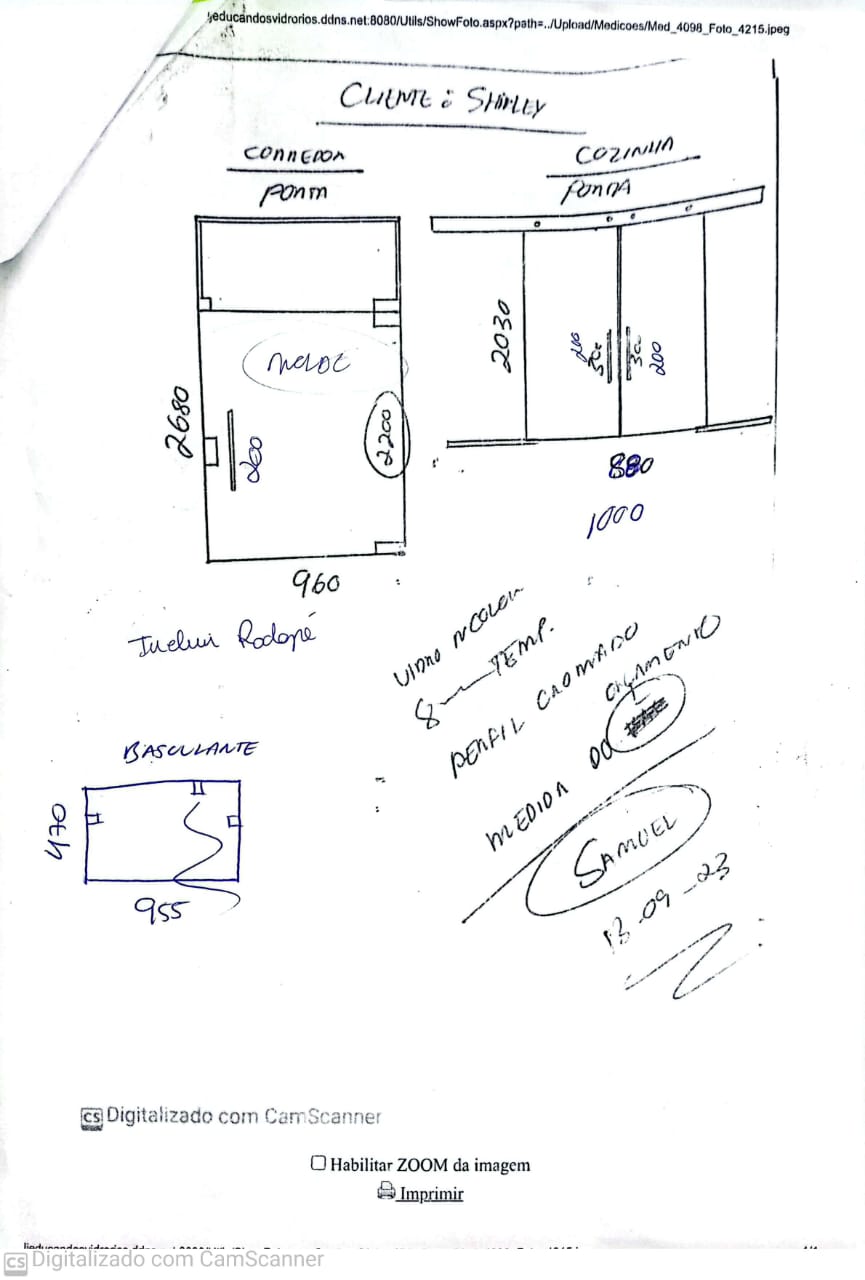 educandosvidrorios.ddns.net:8080/Utils/ShowFoto.aspx?path=../Upload/Medicoes/Med_4098_Foto_4215.jpeg
CLIENTE: SHIRLEY
CORREDOR
PORTA
2680
200
2200
960
Incluir Rodapé
COZINHA
PORTA
2030
200
30c
30c
200
880
1000
VIDRO INCOLOR
8 TEMP.
PERFIL CROMADO
MEDIDA DO ORÇAMENTO
SAMUEL
13-09-23
BASCULANTE
470
955
CS Digitalizado com CamScanner
Habilitar ZOOM da imagem
Imprimir
CS Digitalizado com CamScanner